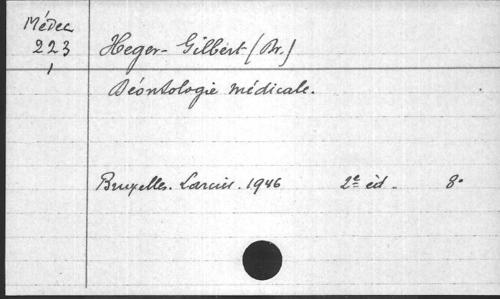 Médec
223
1
Heger-Gilbert (Dr.)
Déontologie médicale.
Bruxelles. Larcier. 1946 2e éd. 8°